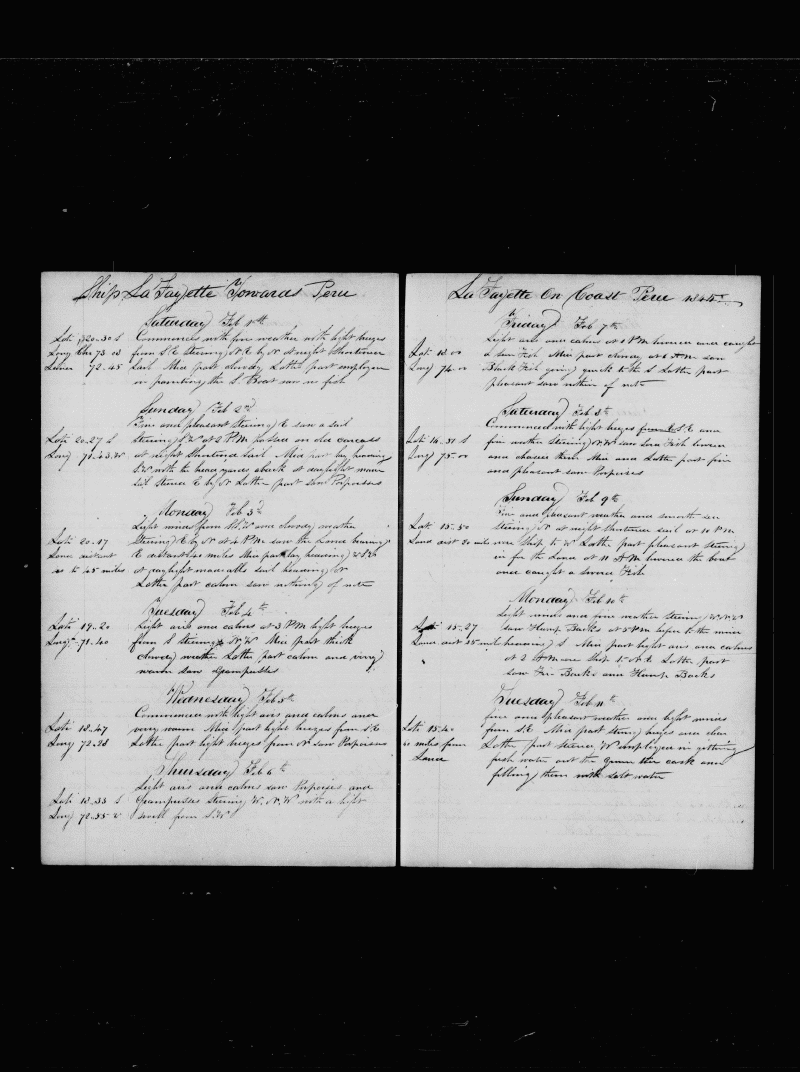 Ship La Fayette Towards Peru
Saturday Feb 1st
Lati 20-30 S Commences with fine weather with light breezes
Long Chr 73 03 from S.E Steering N.E by N at night Shortened
Lunar 72-45 Sail Mid part cloudy Latter part employed
in painting the S. Boat saw no fish
Sunday Feb 2nd
Fine and pleasant Steering E saw a sail
Lati 20-27 S Steering S.W at 2 P.M passed an old carcass
Long 71-43 W at night Shortened Sail Mid part by heading
S.W with the head yards aback at daylight made
sail Steered E by N Latter part saw Porpoises
Monday Feb 3d
Light winds from and cloudy weather
Lati 20-17 Steering E by N at 4 P.M saw the Land bearing
Land distant E miles Mid part lay heading
40 to 45 miles at daylight made all sail heading N
Latter part calm saw nothing of note
Tuesday Feb 4th
Lati 19-20 Light airs and calms at 3 P.M light breezes
Long 71-40 from S Steering N.W Mid part thick
cloudy weather Latter part calm and very
warm saw Grampusses
Wednesday Feb 5th
Commences with light airs and calms and
Lati 18-47 very warm Mid part light breezes from S.E
Long 72-28 Latter part light breezes from N saw Porpoises
Thursday Feb 6th
Light airs and calms saw Porpoises and
Lati 18-33 S Grampusses Steering W.N.W with a light
Long 72-35 W swell from S.W
La Fayette On Coast Peru 1845
Friday Feb 7th
Light airs and calms at 1 P.M lowered and caught
Lati 18 00 a Sun Fish Mid part cloudy at 6 A.M saw
Long 74-00 Black Fish going quick to the S Latter part
pleasant saw nothing of note
Saturday Feb 8th
Commenced with light breezes from S.E and
Lati 16-31 S fine weather Steering N.W saw Fish lowered
Long 75-00 and chased them Mid and Latter part fine
and pleasant saw Porpoises
Sunday Feb 9th
Fine and pleasant weather and smooth sea
Lati 15-50 Steering N at night Shortened sail at 10 P.M
Land dist 30 miles wore Ship to W Latter part pleasant Steering
in for the Land at 11 A.M lowered the boat
and caught a Fish
Monday Feb 10th
Light winds and fine weather Steering W.N.W
Lati 15-27 saw Hump Backs at 5 P.M to the wind
Land dist 25 miles heading S Mid part light airs and calms
at 2 A.M wore Ship to N.E Latter part
saw Fin Backs and Hump Backs
Tuesday Feb 11th
fine and pleasant weather and light winds
Lati 15-40 from S.E Mid part strong breezes and clear
miles from Latter part steered W employed in getting
Land fresh water out the cask and
filling them with salt water